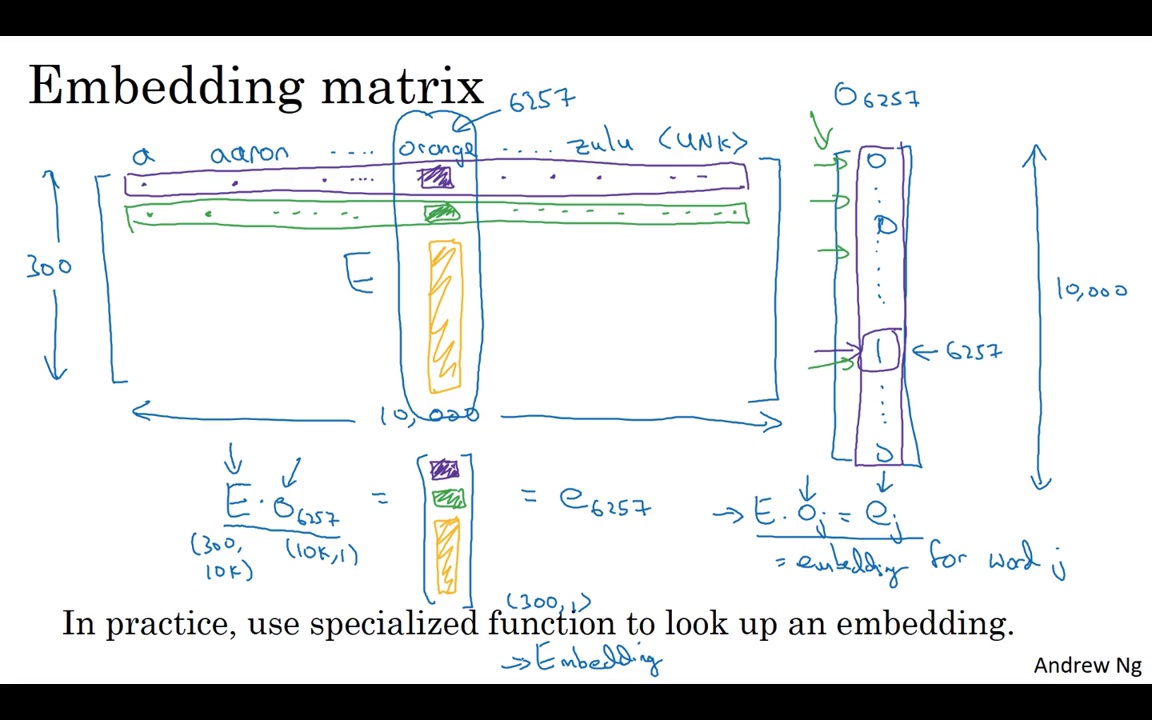 Embedding matrix
6257
O6257
a aaron ..... orange ..... zulu <UNK>
0
0
300
E
10,000
1 ← 6257
10,000
0
E · O6257 = [ ] = e6257
(300, 10K) (10K,1)
(300,1)
→ E · Oj = ej
= embedding for word j
In practice, use specialized function to look up an embedding.
→ Embedding
Andrew Ng